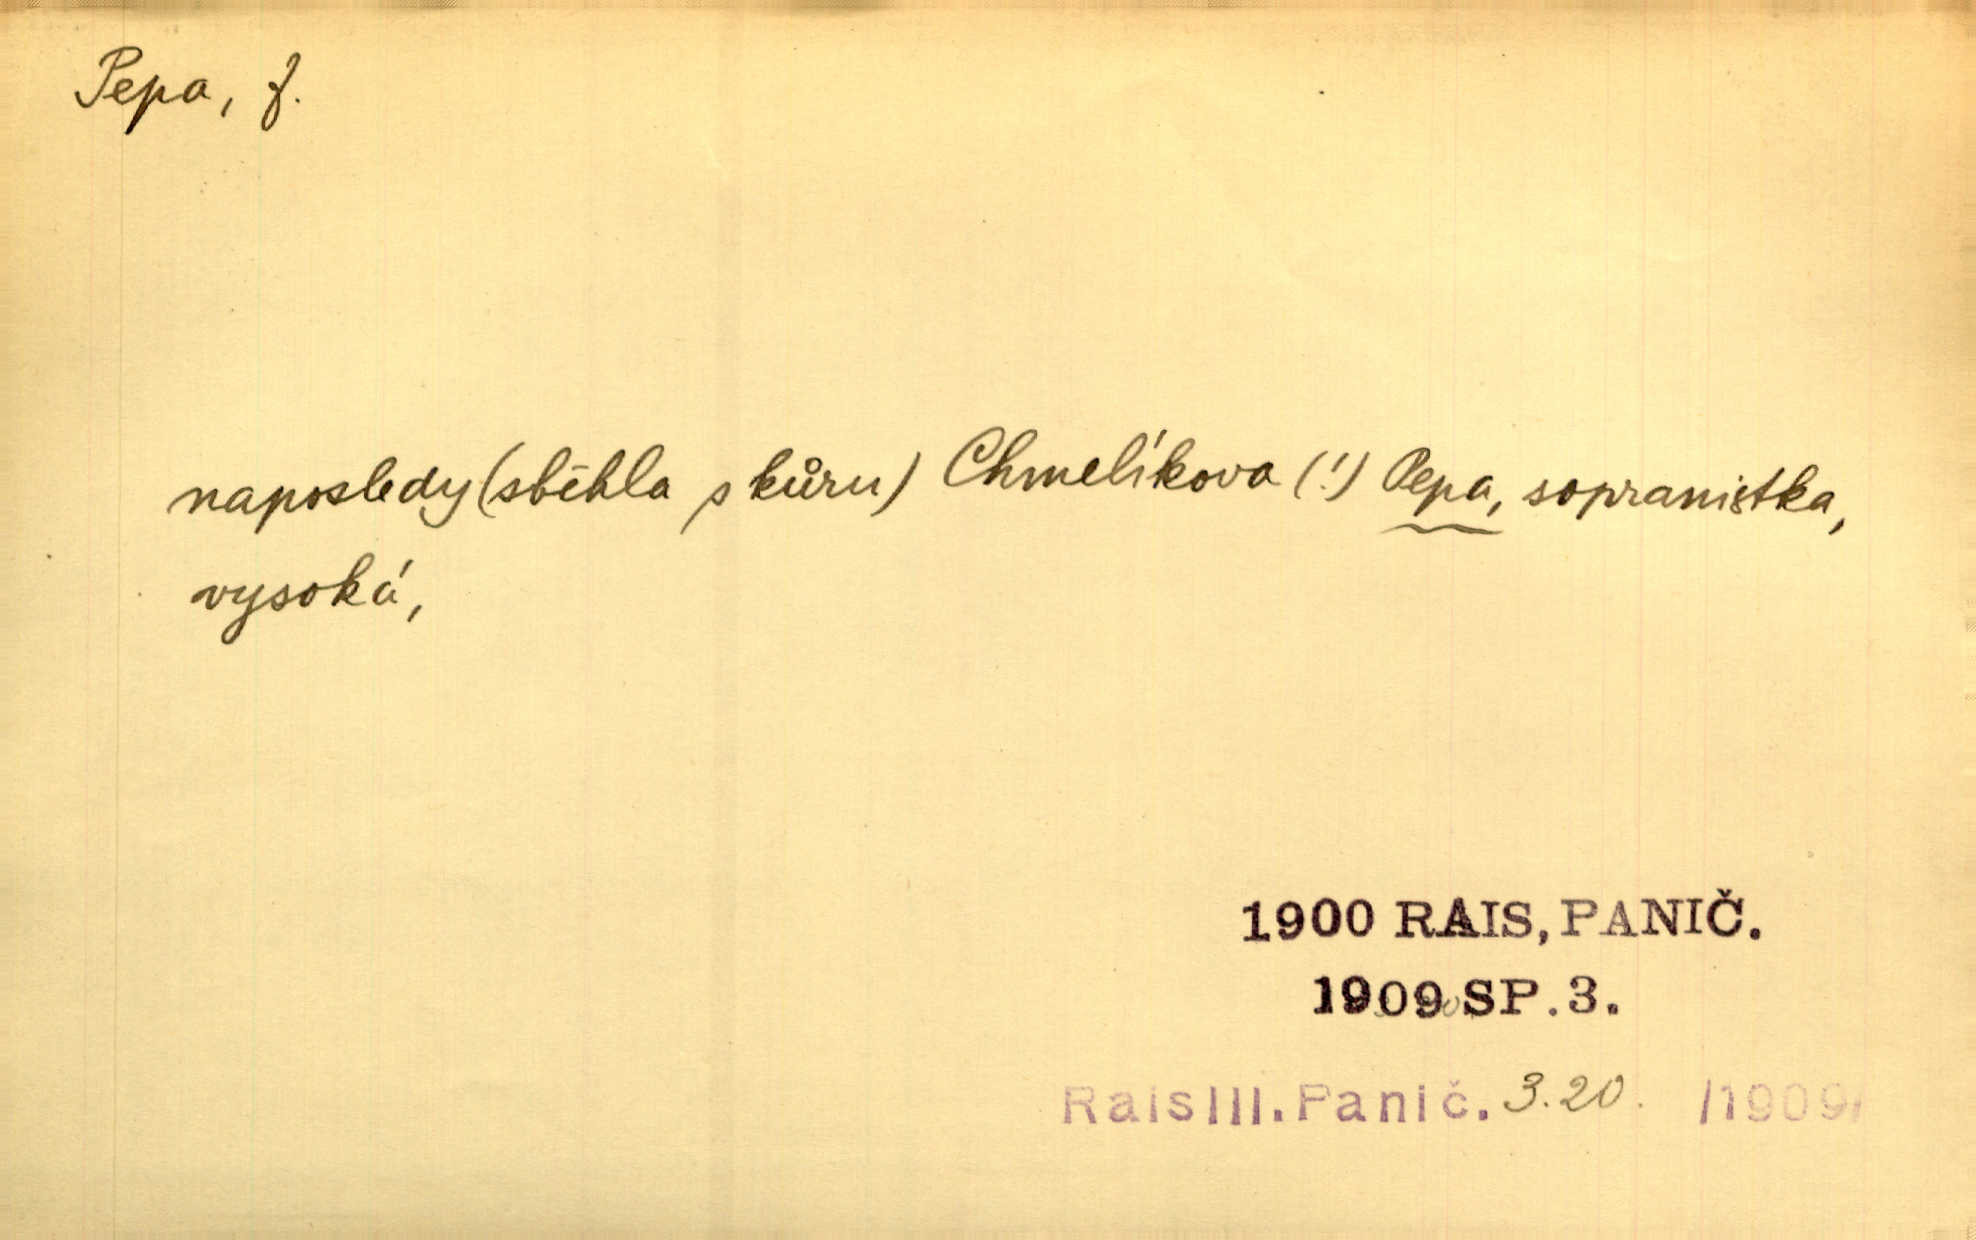 Pepa, f.
naposledy (sběhla s kůru) Chmelíkova (!) Pepa, sopranistka,
vysoká,
1900 RAIS, PANIČ.
1909 SP. 3.
Rais III. Panič. 3.20. /1909/